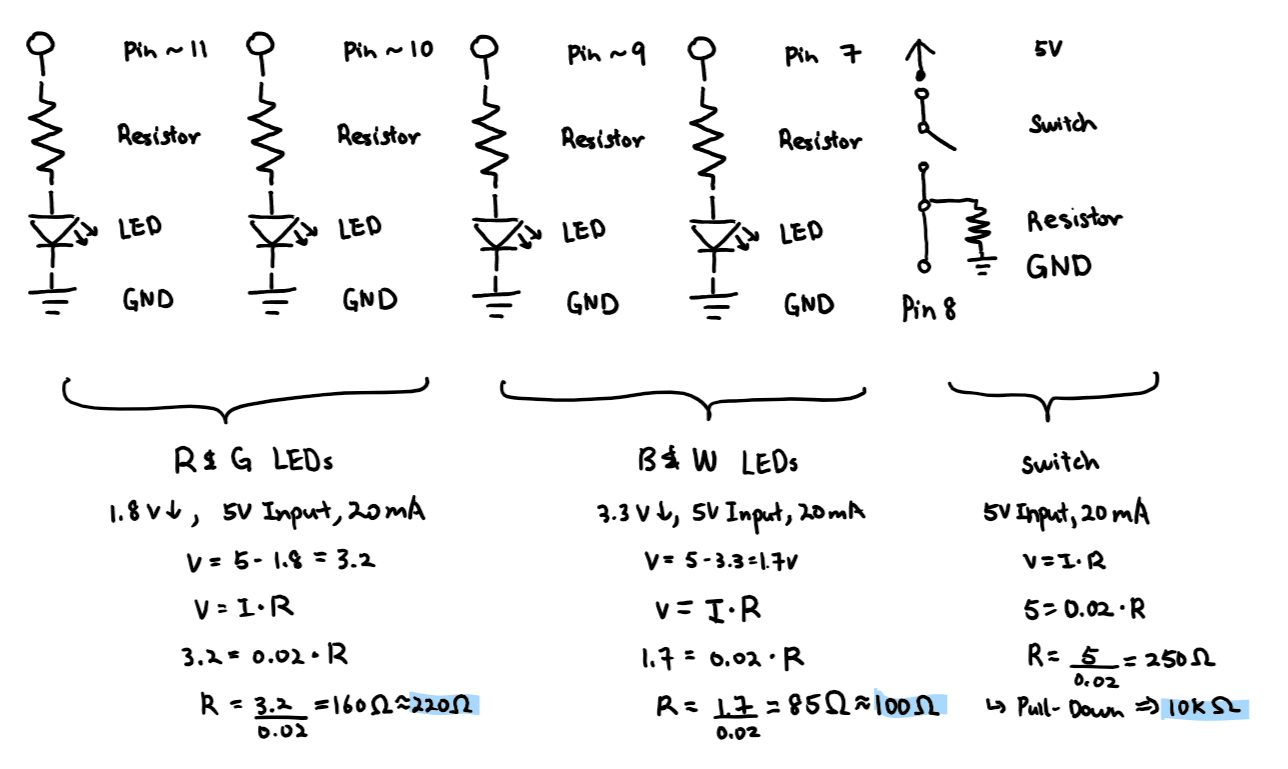 Pin ~ 11
Resistor
LED
GND
Pin ~ 10
Resistor
LED
GND
Pin ~ 9
Resistor
LED
GND
Pin 7
Resistor
LED
GND
5V
Switch
Resistor
GND
Pin 8
R & G LEDs
1.8V↓, 5V Input, 20mA
V = 5 - 1.8 = 3.2
V = I · R
3.2 = 0.02 · R
R = 3.2/0.02 = 160Ω ≈ 220Ω
B & W LEDs
3.3V↓, 5V Input, 20mA
V = 5 - 3.3 = 1.7V
V = I · R
1.7 = 0.02 · R
R = 1.7/0.02 = 85Ω ≈ 100Ω
Switch
5V Input, 20mA
V = I · R
5 = 0.02 · R
R = 5/0.02 = 250Ω
↳ Pull-Down ⇒ 10KΩ